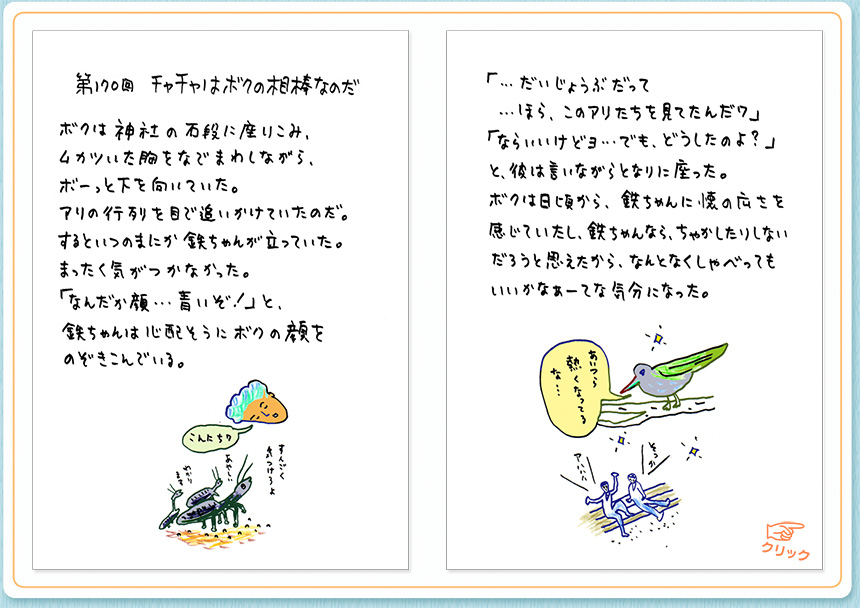 第170回 チャチャはボクの相棒なのだ
ボクは神社の石段に座りこみ、
ムカツいた胸をなでまわしながら、
ボーっと下を向いていた。
アリの行列を目で追いかけていたのだ。
するといつのまにか鉄ちゃんが立っていた。
まったく気がつかなかった。
「なんだか顔…青いぞ!」と、
鉄ちゃんは心配そうにボクの顔を
のぞきこんでいる。
こんにちワ
すんごく
気つけろよ
あやしい
わかり
ます
「…だいじょうぶだって
…ほら、このアリたちを見てたんだワ」
「ならいいけどヨ…でも、どうしたのよ?」
と、彼は言いながらとなりに座った。
ボクは日頃から、鉄ちゃんに懐の広さを
感じていたし、鉄ちゃんなら、ちゃかしたりしない
だろうと思えたから、なんとなくしゃべっても
いいかなあーてな気分になった。
あいつら
熱くなってる
な…
アハハハ
そっか
クリック